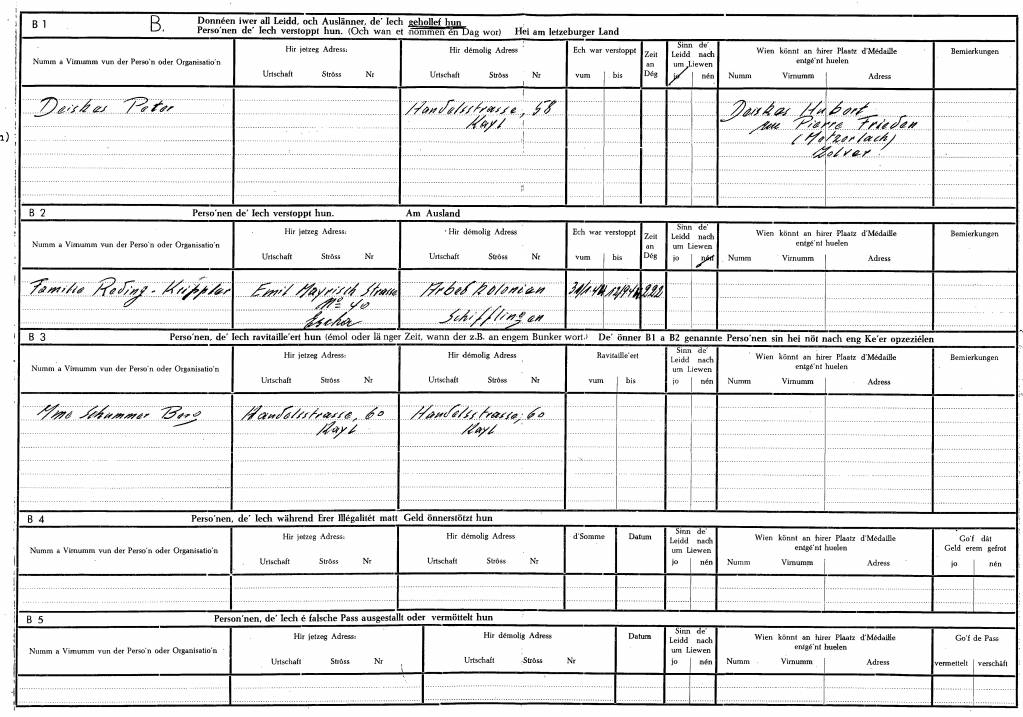 B 1
B.
Donnéen iwer all Leidd, och Auslänner, de' Iech gehollef hun
Perso'nen de' Iech verstoppt hun. (Och wan et nommen en Dag wor) Hei am letzeburger Land
Numm a Virnumm vun der Perso'n oder Organisatio'n
Hir jetzeg Adress:
Urtschaft Ströss Nr
Hir démolig Adress
Urtschaft Ströss Nr
Ech war verstoppt
vum bis
Zeit
an
Dég
Sinn de'
Leidd nach
um Liewen
jo nén
Wien könnt an hirer Plaatz d'Médaille
entgé'nt huelen
Numm Virnumm Adress
Bemierkungen
Deiskes Peter
Handelsstrasse, 58
Kayl
Deiskes Hubert
Pierre Frieden
(Metzerlach)
Zolver
n)
B 2
Perso'nen de' Iech verstoppt hun. Am Ausland
Numm a Virnumm vun der Perso'n oder Organisatio'n
Hir jetzeg Adress:
Urtschaft Ströss Nr
Hir démolig Adress
Urtschaft Ströss Nr
Ech war verstoppt
vum bis
Zeit
an
Dég
Sinn de'
Leidd nach
um Liewen
jo nén
Wien könnt an hirer Plaatz d'Médaille
entgé'nt huelen
Numm Virnumm Adress
Bemierkungen
Familie Reding-Küppler Emil Mayrisch Strasse Arbed Kolonien 222
No 40
Escha Schifflingen
B 3
Perso'nen, de' Iech ravitaille'ert hun (émol oder länger Zeit, wann der z.B. an engem Bunker wort.) De' önner B1 a B2 genannte Perso'nen sin hei nöt nach eng Ke'er opzeziélen
Numm a Virnumm vun der Perso'n oder Organisatio'n
Hir jetzeg Adress:
Urtschaft Ströss Nr
Hir démolig Adress
Urtschaft Ströss Nr
Ravitaille'ert
vum bis
Sinn de'
Leidd nach
um Liewen
jo nén
Wien könnt an hirer Plaatz d'Médaille
entgé'nt huelen
Numm Virnumm Adress
Bemierkungen
Mme Schummer Bero Handelsstrasse, 60 Handelsstrasse, 60
Kayl Kayl
B 4
Perso'nen, de' Iech während Erer Illégalitét matt Geld önnerstötzt hun
Numm a Virnumm vun der Perso'n oder Organisatio'n
Hir jetzeg Adress:
Urtschaft Ströss Nr
Hir démolig Adress
Urtschaft Ströss Nr
d'Somme
Datum
Sinn de'
Leidd nach
um Liewen
jo nén
Wien könnt an hirer Plaatz d'Médaille
entgé'nt huelen
Numm Virnumm Adress
Go'f dát
Geld erem gefrot
jo nén
B 5
Person'nen, de' Iech é falsche Pass ausgestallt oder vermöttelt hun
Numm a Virnumm vun der Perso'n oder Organisatio'n
Hir jetzeg Adress:
Urtschaft Ströss Nr
Hir démolig Adress
Urtschaft Ströss Nr
Datum
Sinn de'
Leidd nach
um Liewen
jo nén
Wien könnt an hirer Plaatz d'Médaille
entgé'nt huelen
Numm Virnumm Adress
Go'f de Pass
vermettelt verschäft